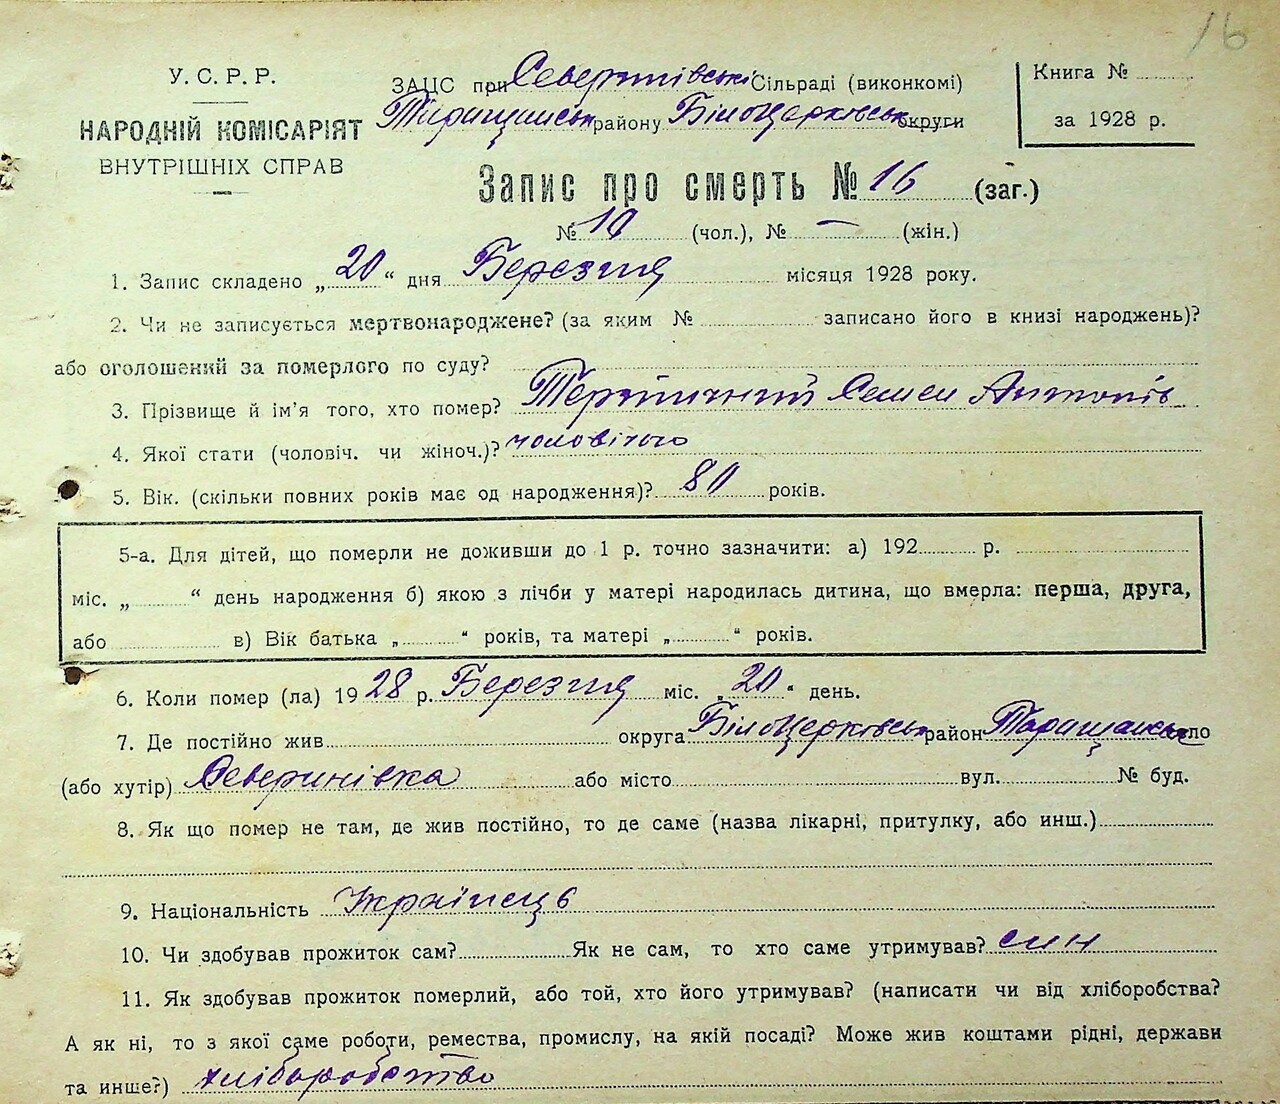 16
У. С. Р. Р.
НАРОДНІЙ КОМІСАРІЯТ
ВНУТРІШНІХ СПРАВ
ЗАЦС при Северинівські Сільраді (виконкомі)
Таращанськ району Білоцерківськ округи
Книга №
за 1928 р.
Запис про смерть № 16 (заг.)
№ 10 (чол.), № — (жін.)
1. Запис складено „ 20 “ дня Березня місяця 1928 року.
2. Чи не записується мертвонароджене? (за яким № записано його в книзі народжень)?
або оголошений за померлого по суду?
3. Прізвище й ім'я того, хто помер? Семен Антонів
4. Якої стати (чоловіч. чи жіноч.)? чоловічого
5. Вік. (скільки повних років має од народження)? 80 років.
5-а. Для дітей, що померли не доживши до 1 р. точно зазначити: а) 192 р.
міс. „ “ день народження б) якою з лічби у матері народилась дитина, що вмерла: перша, друга,
або в) Вік батька „ “ років, та матері „ “ років.
6. Коли помер (ла) 19 28 р. Березня міс. „ 20 “ день.
7. Де постійно жив округа Білоцерківськ район Таращанськ село
(або хутір) Северинівка або місто вул. № буд.
8. Як що помер не там, де жив постійно, то де саме (назва лікарні, притулку, або инш.)
9. Національність Українець
10. Чи здобував прожиток сам? Як не сам, то хто саме утримував? син
11. Як здобував прожиток померлий, або той, хто його утримував? (написати чи від хліборобства?
А як ні, то з якої саме роботи, ремества, промислу, на якій посаді? Може жив коштами рідні, держави
та инше?) хліборобство